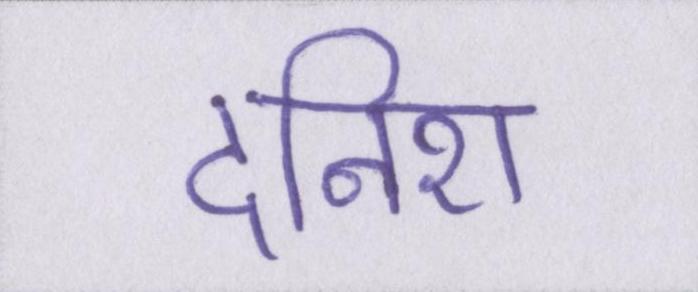 दनिश